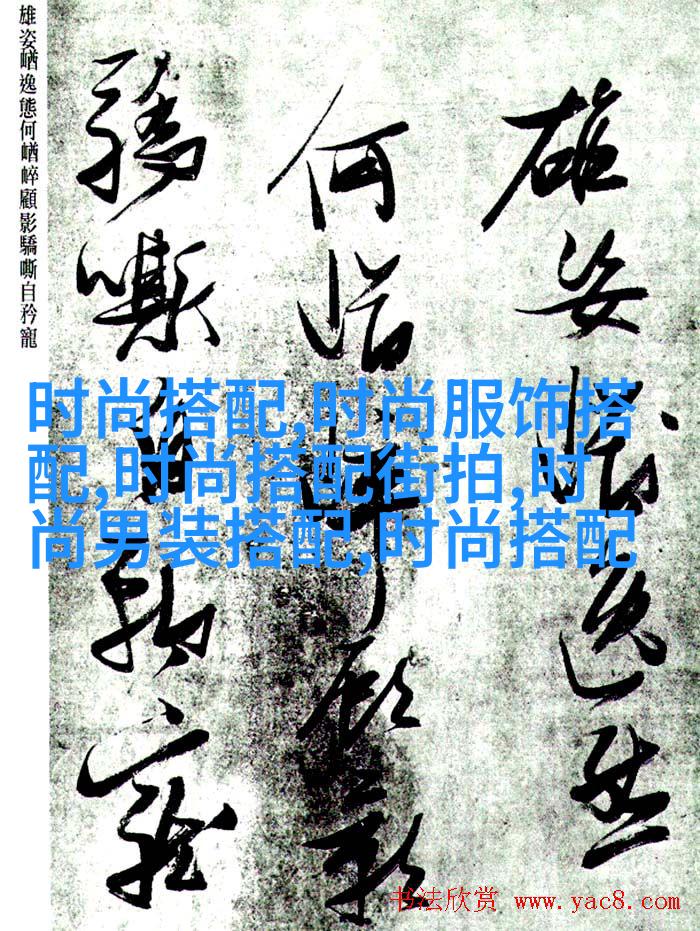 雄姿崷逸態何崷崒顧影驕嘶自矜寵
雄姿崷逸態
何崷崒顧影
驕嘶自矜寵
时尚搭配,时尚服饰搭
配,时尚搭配街拍,时
尚男装搭配,时尚搭配
书法欣赏 www.yac8.com